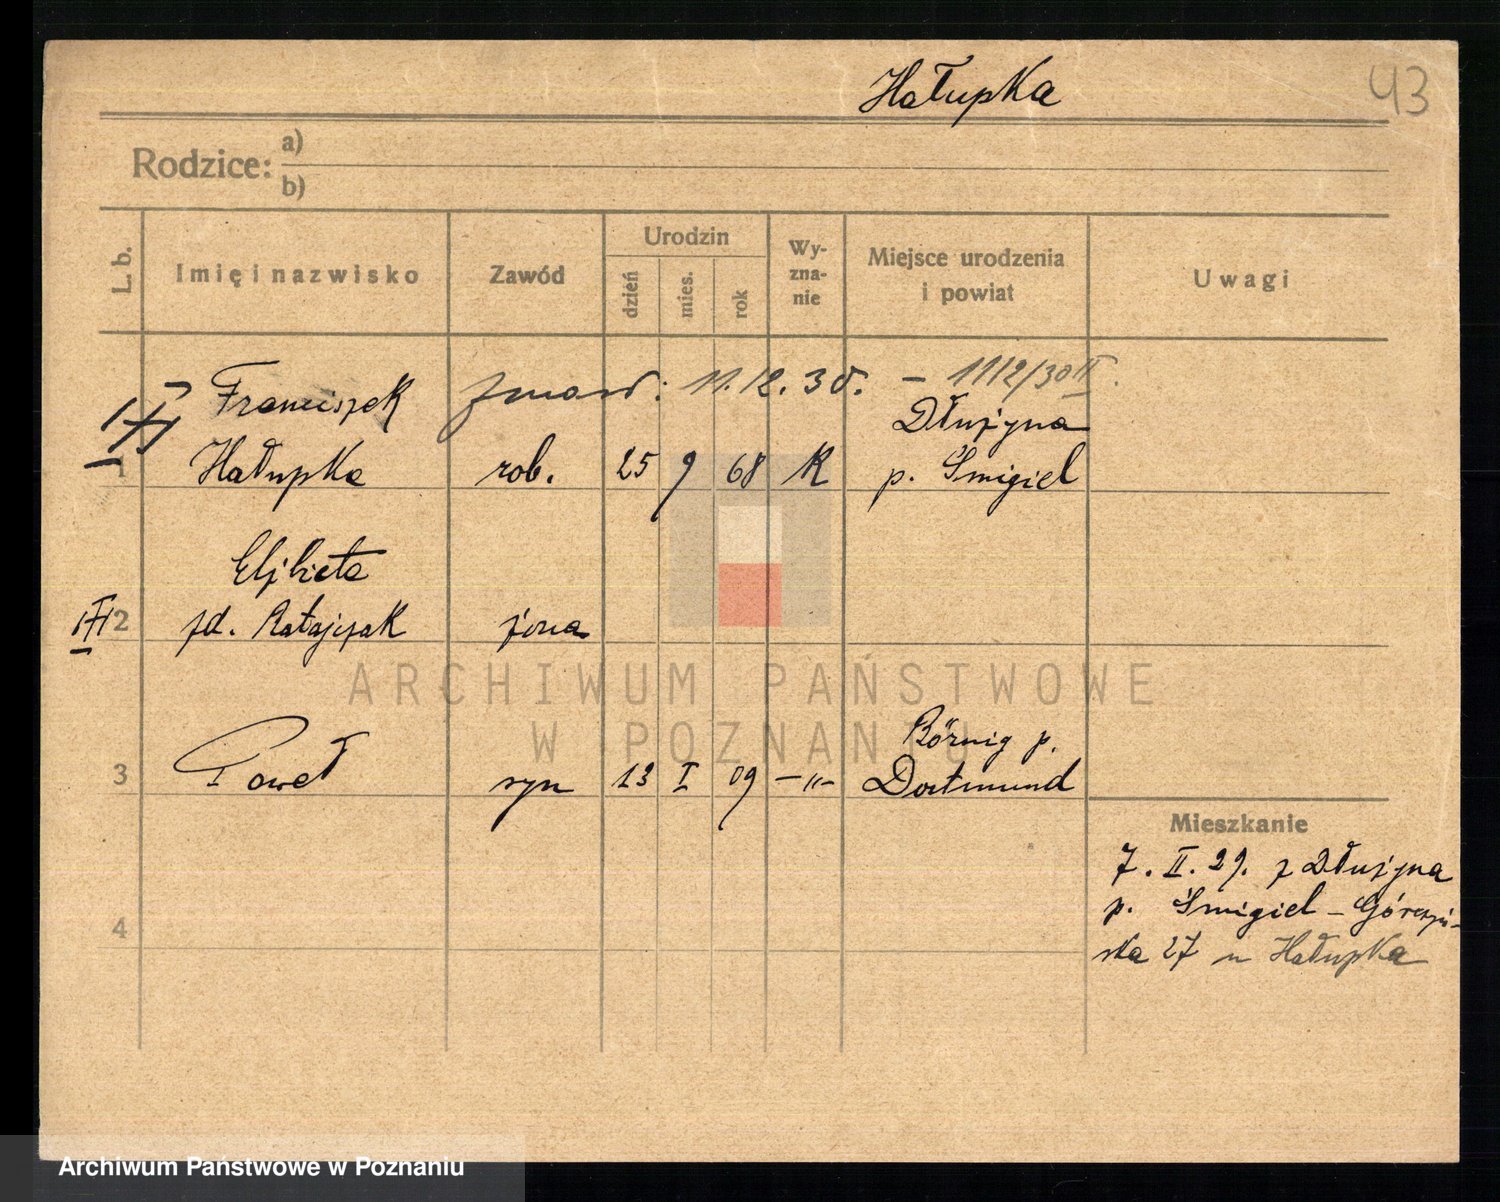 Hałupka
43
Rodzice:
a)
b)
L. b.
Imię i nazwisko
Zawód
Urodzin
dzień
mies.
rok
Wy-
zna-
nie
Miejsce urodzenia
i powiat
Uwagi
Franciszek zmarł: 11.12.30. – 1112/30 II.
Dłużyna
1 Hałupka rob. 25 9 68 K p. Śmigiel
Elżbieta
2 zd. Ratajczak żona
ARCHIWUM PAŃSTWOWE
W POZNANIU
Börnig p.
3 Paweł syn 13 I 09 –"– Dortmund
Mieszkanie
7. II. 29. z Dłużyna
p. Śmigiel – Górczyń-
4
ska 27 u Hałupka
Archiwum Państwowe w Poznaniu